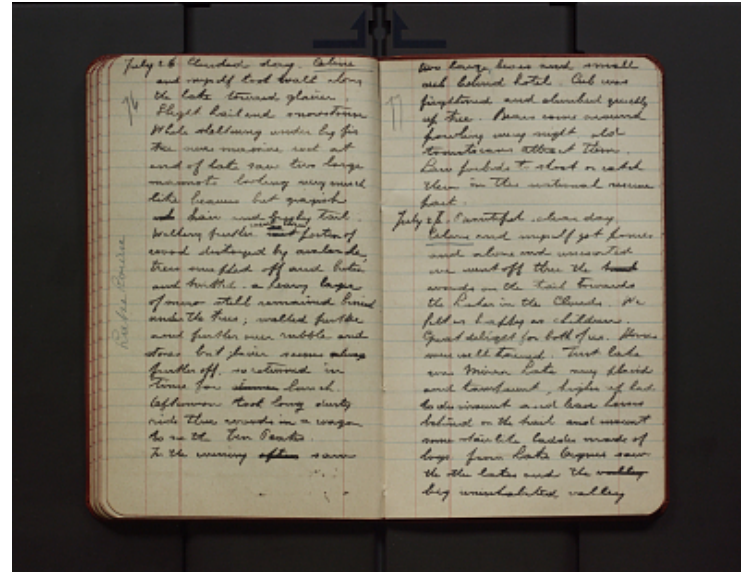 July 26 Clouded day. Celine
and myself took walk along
the lake toward glacier.
76
Slight hail and snowstorm
While sheltering under big fir
tree near massive rock at
end of lake saw two large
marmots looking very much
like beavers but grayish
hair and bushy tail.
Walking further portion of
wood destroyed by avalanche,
trees snapped off and broken
and twisted. a heavy layer
of snow still remained
under the trees; walked further
and further over rubble and
stones but glacier seems always
further off. so returned in
time for dinner lunch.
Afternoon took long dusty
ride thru woods in a wagon
to see the Ten Peaks.
In the evening often saw
two large bears and small
cub behind hotel. Cub was
77
frightened and climbed quickly
up tree. Bears come around
prowling every night old
tomato cans attract them.
Law forbids to shoot or catch
them in the national reserve
park.
July 27. Beautiful clear day.
Celine and myself got ponies
and alone and unescorted
we went off thru the
woods on the trail towards
the Lakes in the Clouds. We
felt as happy as children.
Great delight for both of us. Horses
were well trained. First lake
was Mirror Lake very placid
and transparent, higher up had
to dismount and leave horses
behind on the trail and mount
some stair like ladder made of
logs from Lake Agnes saw
the other lakes and the valley
big uninhabited valley